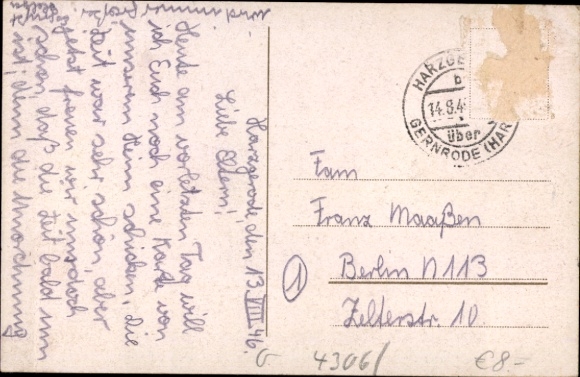 Harzgerode, den 13. VIII. 46.
Liebe Eltern!
Heute am vorletzten Tag will
ich Euch noch eine Karte von
unserem Heim schicken, die
Zeit war sehr schön, aber
jetzt freuen wir uns doch
schon, daß die Zeit bald um
ist, denn die
wird immer größer.
HARZGE
14.8.4
über
GERNRODE (HAR
Fam
Franz Maaßen
1
Berlin N 113
Zelterstr. 10
4306/
€8.-